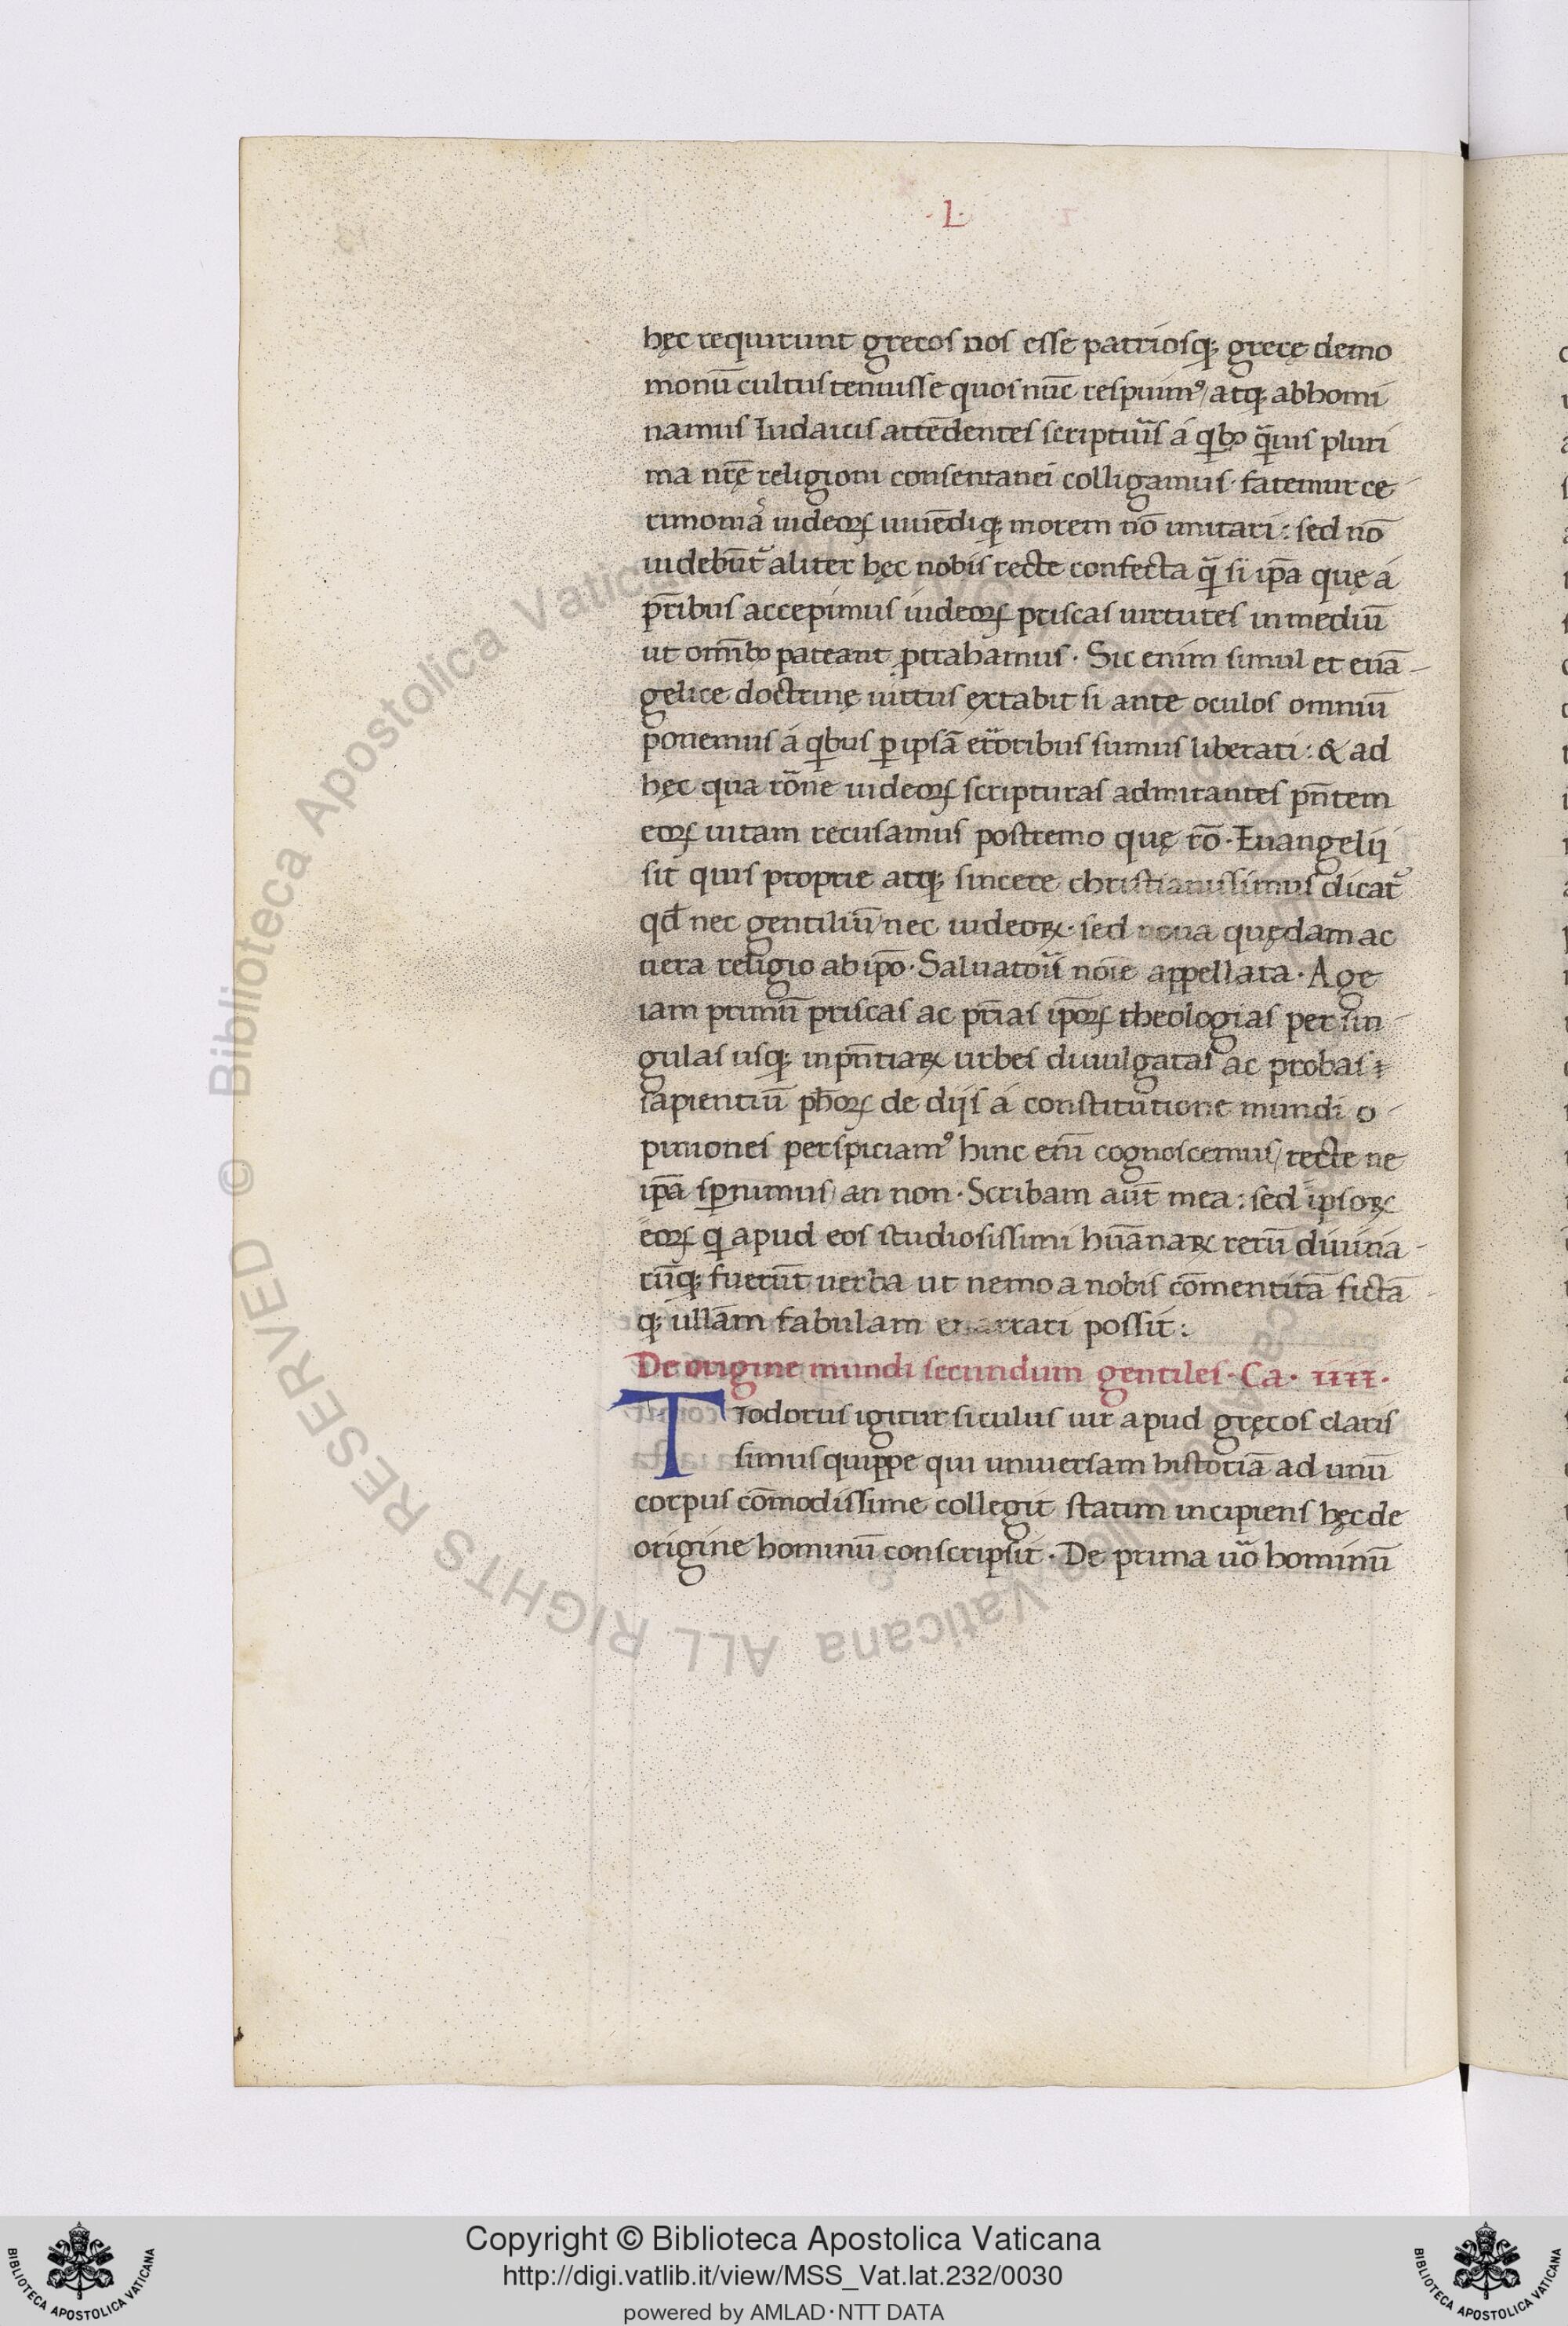 ·L·
hęc requirunt grecos nos esse patriosq; grecę demo
monū cultus tenuisse quos nūc respuimꝰ/ atq; abhomi
namus Iudaicis attēdentes scriptur̄is á qib; q̄uis pluri
ma nr̄ę religioni consentanei colligamus· fatemur ce-
rimoniā iudeoꝝ uiuēdiq; morem nō imitari: sed nō
uidebūt᷑ aliter hęc nobis recte confecta q̄ si ip̄a quę á
pr̄ibus accepimus iudeoꝝ priscas uirtutes in mediū
ut omīb; pateant ꝓtrahamus· Sic enim simul et euā-
gelice doctrinę uirtus extabit si ante oculos omniū
ponemus á qibus ꝑ ipsā erroribus sumus liberati: & ad
hęc qua rōne iudeoꝝ scripturas admirantes pn̄tem
eoꝝ uitam recusamus postremo quę rō· Euangelij
sit quis proprie atq; sincere christianissimus dicat᷑
qd̄ nec gentiliū/ nec iudeoꝝ· sed noua quędam ac
uera religio ab ip̄o· Saluatoris noīe appellata· Age
iam primū priscas ac pr̄ias ip̄oꝝ theologias per sin-
gulas usq; in pn̄tiaꝝ urbes diuulgatas ac probas ⁊
sapientiū ph̄oꝝ de dijs á constitutione mundi o-
piniones perspiciamꝰ hinc enī cognoscemus/ recte ne
ip̄a sꝑnimus/ an non· Scribam aūt mea: sed ipsoꝝ
eoꝝ qi apud eos studiosissimi hūanaꝝ rerū diuina-
rūq; fuerūt uerba ut nemo a nobis cōmentitā fictā-
q; ullam fabulam enarrari possit:
De origine mundi secundum gentiles· Ca· IIII·
Tiodorus igitur siculus uir apud gręcos claris
simus quippe qui uniuersam historiā ad unū
corpus cōmodissime collegit statim incipiens hęc de
origine hominū conscripsit· De prima uō hominū
© Biblioteca Apostolica Vaticana ALL RIGHTS RESERVED
Copyright © Biblioteca Apostolica Vaticana
http://digi.vatlib.it/view/MSS_Vat.lat.232/0030
powered by AMLAD·NTT DATA
BIBLIOTECA APOSTOLICA VATICANA
BIBLIOTECA APOSTOLICA VATICANA